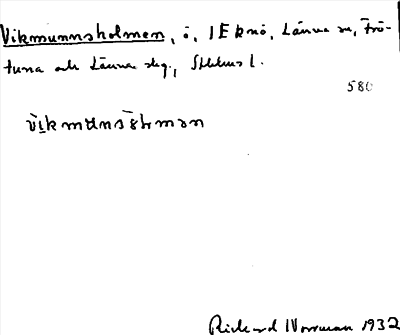 Vikmunnsholmen, ö, 1 E Knö, Länna sn, Frö-
tuna och Länna skg., Sthlms l.
580
vikmunsåhmən
Rickard Norrman 1932